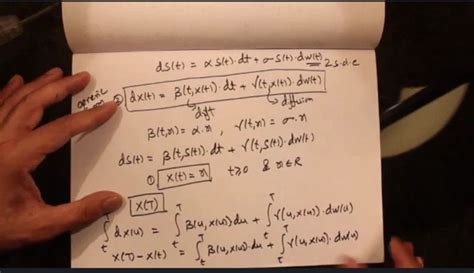 dS(t) = α S(t)·dt + σ S(t)·dW(t) } s.d.e
generic
② dX(t) = β(t,X(t))·dt + γ(t,X(t))·dW(t)
drift diffusion
β(t,x) = α·x , γ(t,x) = σ·x
dS(t) = β(t,S(t))·dt + γ(t,S(t))·dW(t)
① X(t) = x t≥0 & x∈R
X(T)
∫ₜᵀ dX(u) = ∫ₜᵀ β(u,X(u))du + ∫ₜᵀ γ(u,X(u))·dW(u)
X(T)-X(t) = ∫ₜᵀ β(u,X(u))·du + ∫ₜᵀ γ(u,X(u))·dW(u)